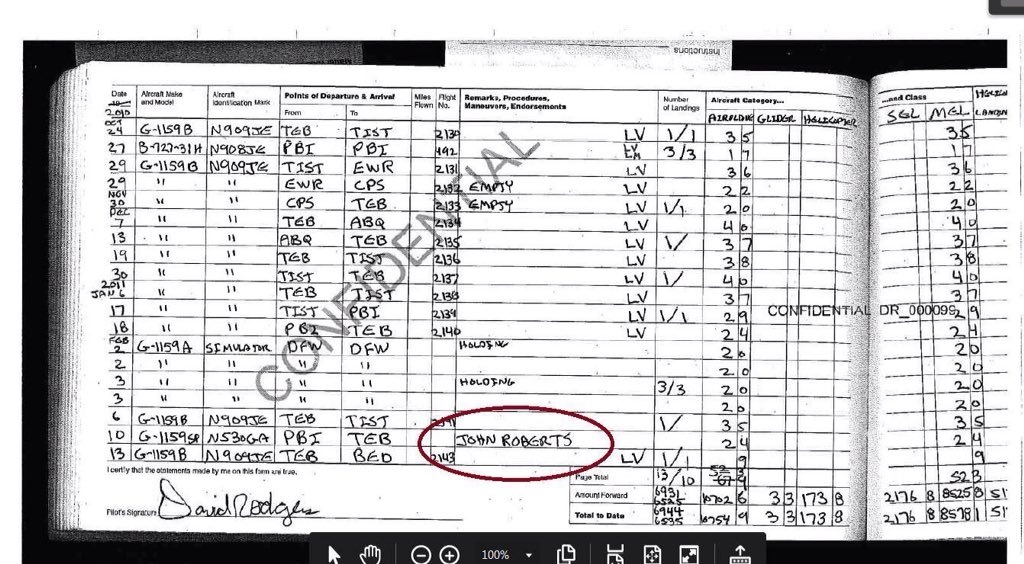 Instructions
Date Aircraft Make and Model Aircraft Identification Mark Points of Departure & Arrival From To Miles Flown Flight No. Remarks, Procedures, Maneuvers, Endorsements Number of Landings Aircraft Category... AIRPLANE GLIDER HELICOPTER ...and Class SEL MEL
2010
OCT 24 G-1159B N909JE TEB TIST 2130 LV 1/1 3 5 35
27 B-727-31H N908JE PBI PBI 492 LV LM 3/3 1 7 17
29 G-1159B N909JE TIST EWR 2131 LV 3 6 36
29 " " EWR CPS 2132 EMPTY LV 2 2 22
NOV 30 " " CPS TEB 2133 EMPTY LV 1/1 2 0 20
DEC 7 " " TEB ABQ 2134 LV 4 0 40
13 " " ABQ TEB 2135 LV 1/ 3 7 37
19 " " TEB TIST 2136 LV 3 8 38
30 " " TIST TEB 2137 LV 1/ 4 0 40
2011 JAN 6 " " TEB TIST 2138 LV 3 7 37
17 " " TIST PBI 2139 LV 1/1 2 9 29
CONFIDENTIAL DR_000099
18 " " PBI TEB 2140 LV 2 4 24
FEB 2 G-1159A SIMULATOR DFW DFW HOLDING 2 0 20
2 " " " " 2 0 20
3 " " " " HOLDING 3/3 2 0 20
3 " " " " 2 0 20
6 G-1159B N909JE TEB TIST 1/ 3 5 35
10 G-1159SP N530GA PBI TEB JOHN ROBERTS 2 4 24
13 G-1159B N909JE TEB BED 2143 LV 1/1 9 9
I certify that the statements made by me on this form are true. Page Total 13/10 523
Amount Forward 6931 6525 10702 6 3 3 173 8 2176 8 8525 8 51
Pilot's Signature David Rodgers Total to Date 6944 6535 10754 9 3 3 173 8 2176 8 8578 1 51
CONFIDENTIAL
100%